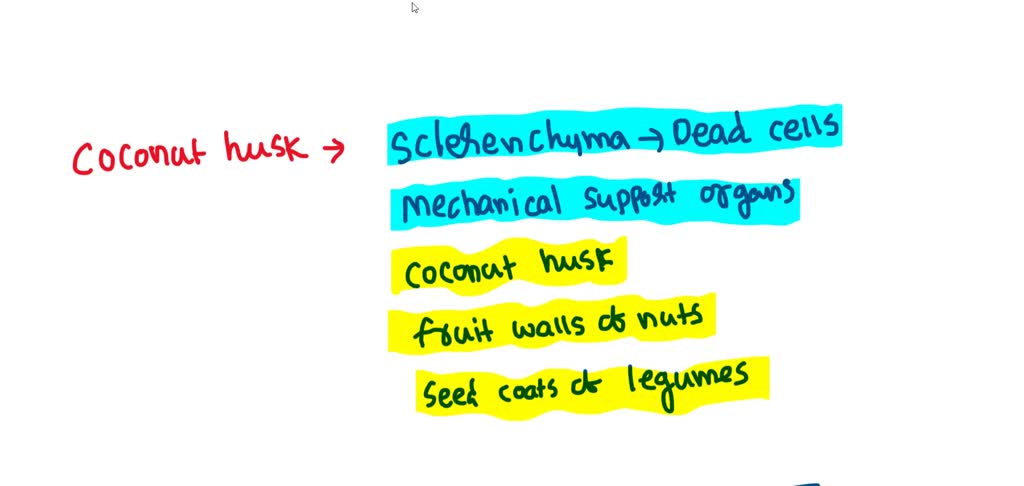 Coconut husk → Sclerenchyma → Dead cells
Mechanical support organs
Coconut husk
fruit walls of nuts
Seed coats of legumes